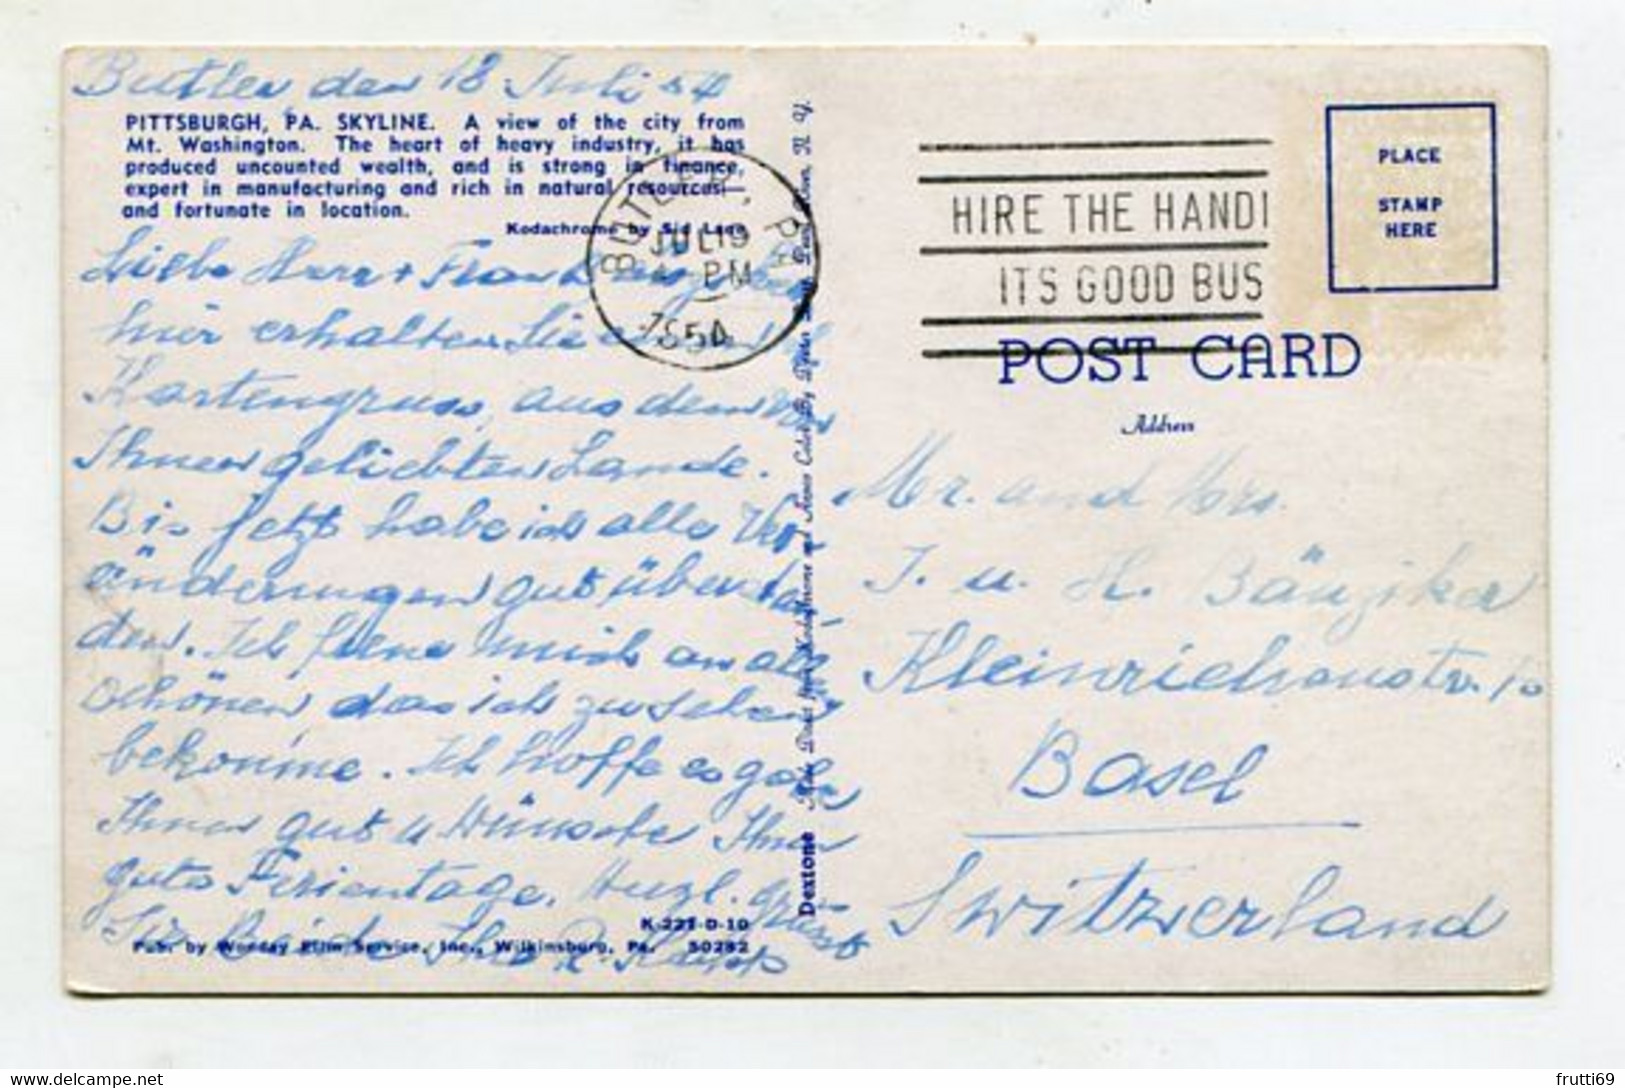 Butler den 18 Juli 54
PITTSBURGH, PA. SKYLINE. A view of the city from
Mt. Washington. The heart of heavy industry, it has
produced uncounted wealth, and is strong in finance,
expert in manufacturing and rich in natural resources—
and fortunate in location.
Kodachrome by Sid Lane
Liebe Herr + Frau Bänziger
hier erhalten Sie
Kartengruss, aus dem von
Ihnen geliebten Lande.
Bis jetzt habe ich alle Ver-
änderungen gut überstan-
den. Ich freue mich an all
schönen das ich zu sehen
bekomme. Ich hoffe es geht
Ihnen gut u wünsche Ihnen
gute Ferientage. Herzl. Grüsst
Sie Beide Ihre R. Rapp
K-221-D-10
Pub. by Wonday Film Service, Inc., Wilkinsburg, Pa. 50282
Dextone Made Direct from Kodachrome and Ansco Color By
BUTLER, PA
JUL 19
PM
1954
HIRE THE HANDI
ITS GOOD BUS
PLACE
STAMP
HERE
POST CARD
Address
Mr. and Mrs.
J. u. H. Bänziker
Kleinrichenstr. 10
Basel
Switzerland
frutti69